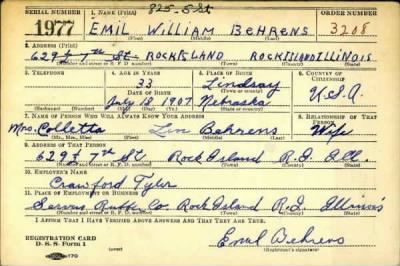 SERIAL NUMBER 1. NAME (Print) 825-525 ORDER NUMBER
1977 EMIL WILLIAM BEHRENS 3208
(First) (Middle) (Last)
2. ADDRESS (Print)
629½ 7th St. ROCK ISLAND ROCK ISLAND ILLINOIS
(Number and street or R. F. D. number) (Town) (County) (State)
3. TELEPHONE 4. AGE IN YEARS 5. PLACE OF BIRTH 6. COUNTRY OF CITIZENSHIP
33 Lindsay
DATE OF BIRTH (Town or county)
July 18 1907 Nebraska U.S.A.
(Exchange) (Number) (Mo.) (Day) (Yr.) (State or country)
7. NAME OF PERSON WHO WILL ALWAYS KNOW YOUR ADDRESS 8. RELATIONSHIP OF THAT PERSON
Mrs. Colletta Behrens Wife
(Mr., Mrs., Miss) (First) (Middle) (Last)
9. ADDRESS OF THAT PERSON
629½ 7th St. Rock Island R.I. Ill.
(Number and street or R. F. D. number) (Town) (County) (State)
10. EMPLOYER'S NAME
Crawford Tyler
11. PLACE OF EMPLOYMENT OR BUSINESS
Co. Rock Island R.I. Illinois
(Number and street or R. F. D. number) (Town) (County) (State)
I AFFIRM THAT I HAVE VERIFIED ABOVE ANSWERS AND THAT THEY ARE TRUE.
REGISTRATION CARD
D. S. S. Form 1 Emil Behrens
(Registrant's signature)